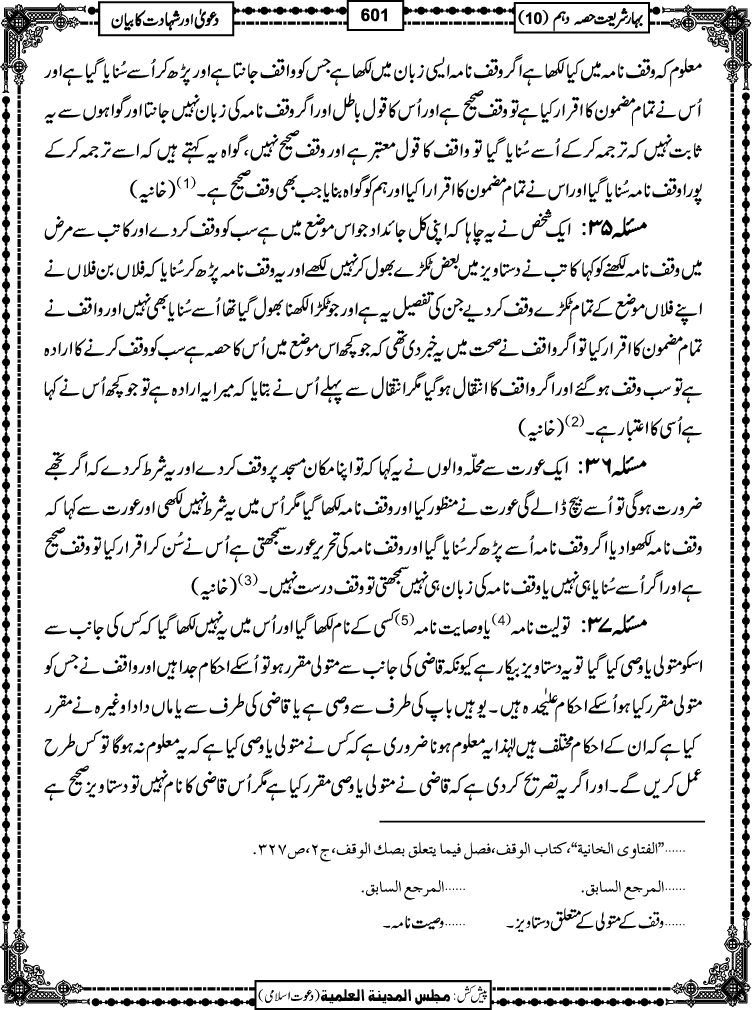 بہارِ شریعت حصہ دہم (10)
601
دعویٰ اور شہادت کا بیان
معلوم کہ وقف نامہ میں کیا لکھا ہے اگر وقف نامہ ایسی زبان میں لکھا ہے جس کو واقف جانتا ہے اور پڑھ کر اُسے سُنایا گیا ہے اور
اُس نے تمام مضمون کا اقرار کیا ہے تو وقف صحیح ہے اور اُس کا قول باطل اور اگر وقف نامہ کی زبان نہیں جانتا اور گواہوں سے یہ
ثابت نہیں کہ ترجمہ کرکے اُسے سُنایا گیا تو واقف کا قول معتبر ہے اور وقف صحیح نہیں، گواہ یہ کہتے ہیں کہ اسے ترجمہ کرکے
پورا وقف نامہ سُنایا گیا اور اس نے تمام مضمون کا اقرار کیا اور ہم کو گواہ بنایا جب بھی وقف صحیح ہے۔(1) (خانیہ)
مسئلہ ۳۵: ایک شخص نے یہ چاہا کہ اپنی کل جائداد جو اس موضع میں ہے سب کو وقف کردے اور کاتب سے مرض
میں وقف نامہ لکھنے کو کہا کاتب نے دستاویز میں بعض ٹکڑے بھول کر نہیں لکھے اور یہ وقف نامہ پڑھ کر سُنایا کہ فلاں بن فلاں نے
اپنے فلاں موضع کے تمام ٹکڑے وقف کردیے جن کی تفصیل یہ ہے اور جو ٹکڑا لکھنا بھول گیا تھا اُسے سُنایا بھی نہیں اور واقف نے
تمام مضمون کا اقرار کیا تو اگر واقف نے صحت میں یہ خبر دی تھی کہ جو کچھ اس موضع میں اُس کا حصہ ہے سب کو وقف کرنے کا ارادہ
ہے تو سب وقف ہوگئے اور اگر واقف کا انتقال ہوگیا مگر انتقال سے پہلے اُس نے بتایا کہ میرا یہ ارادہ ہے تو جو کچھ اُس نے کہا
ہے اُسی کا اعتبار ہے۔(2) (خانیہ)
مسئلہ ۳۶: ایک عورت سے محلّہ والوں نے یہ کہا کہ تو اپنا مکان مسجد پر وقف کردے اور یہ شرط کردے کہ اگر تجھے
ضرورت ہوگی تو اُسے بیچ ڈالے گی عورت نے منظور کیا اور وقف نامہ لکھا گیا مگر اُس میں یہ شرط نہیں لکھی اور عورت سے کہا کہ
وقف نامہ لکھوا دیا اگر وقف نامہ اُسے پڑھ کر سُنایا گیا اور وقف نامہ کی تحریر عورت سمجھتی ہے اُس نے سُن کر اقرار کیا تو وقف صحیح
ہے اور اگر اُسے سُنایا ہی نہیں یا وقف نامہ کی زبان ہی نہیں سمجھتی تو وقف درست نہیں۔(3) (خانیہ)
مسئلہ ۳۷: تولیت نامہ(4) یا وصایت نامہ(5) کسی کے نام لکھا گیا اور اُس میں یہ نہیں لکھا گیا کہ کس کی جانب سے
اسکو متولی یا وصی کیا گیا تو یہ دستاویز بیکار ہے کیونکہ قاضی کی جانب سے متولی مقرر ہو تو اُسکے احکام جدا ہیں اور واقف نے جس کو
متولی مقرر کیا ہو اُسکے احکام علیٰحدہ ہیں۔ یوہیں باپ کی طرف سے وصی ہے یا قاضی کی طرف سے یا ماں دادا وغیرہ نے مقرر
کیا ہے کہ ان کے احکام مختلف ہیں لہٰذا یہ معلوم ہونا ضروری ہے کہ کس نے متولی یا وصی کیا ہے کہ یہ معلوم نہ ہوگا تو کس طرح
عمل کریں گے۔ اور اگر یہ تصریح کردی ہے کہ قاضی نے متولی یا وصی مقرر کیا ہے مگر اُس قاضی کا نام نہیں تو دستاویز صحیح ہے
......"الفتاوی الخانیة"، کتاب الوقف، فصل فیما یتعلق بصك الوقف، ج۲، ص۳۲۷.
......المرجع السابق. ......المرجع السابق.
......وقف کے متولی کے متعلق دستاویز۔ ......وصیت نامہ۔
پیش کش: مجلس المدینة العلمیة (دعوت اسلامی)